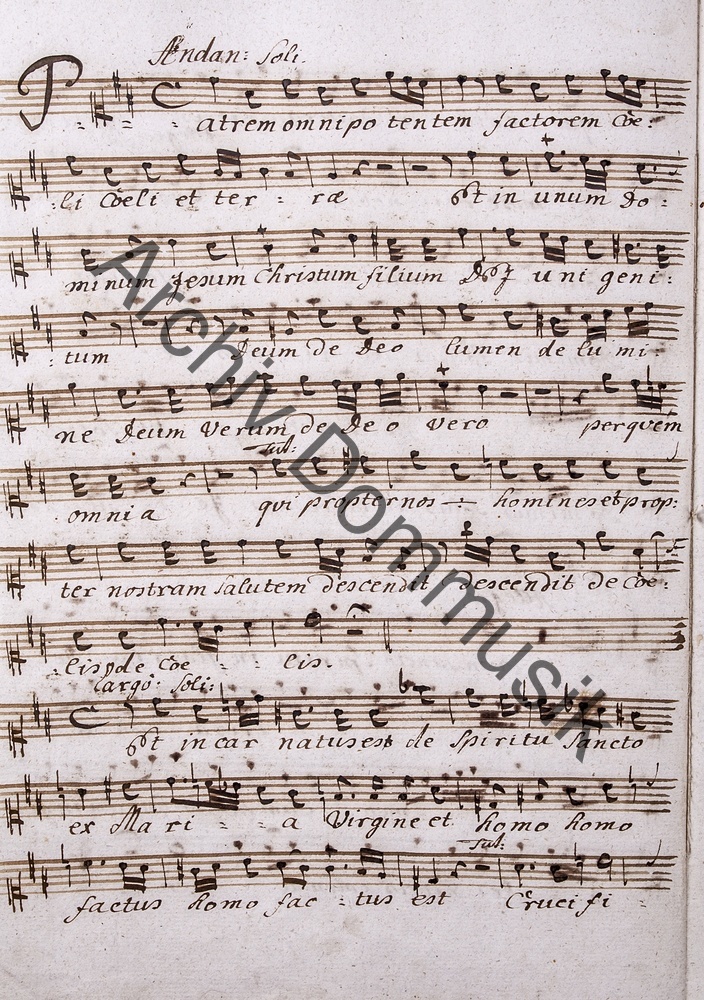 Andan: Soli.
P
atrem omnipo tentem factorem Coe:
:li Coeli et ter - : rae Et in unum Do:
minum Jesum Christum filium DEI uni geni:
:tum Deum de Deo lumen de lu mi:
ne Deum Verum de De o vero per quem
tut:
omni a qui propter nos homines et prop:
ter nostram salutem descendit descendit de Coe:
lis de Coe - - lis.
Largo: Soli:
Et in car natus est de Spiritu Sancto
ex Ma ri - - a Virgine et homo homo
tut:
factus homo fac - tus est Cruci fi -
Archiv Dommusik